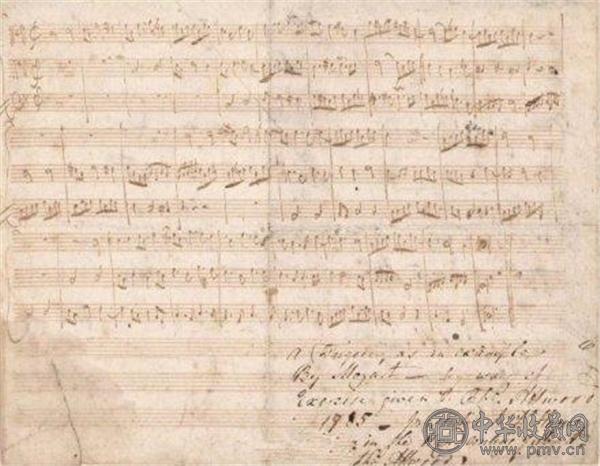 a Fugue, as an example
By Mozart — by way of
Exercise given to Thos. Attwood
1785 —
in the
Thos. Attwood
中华收藏网
www.pmv.cn